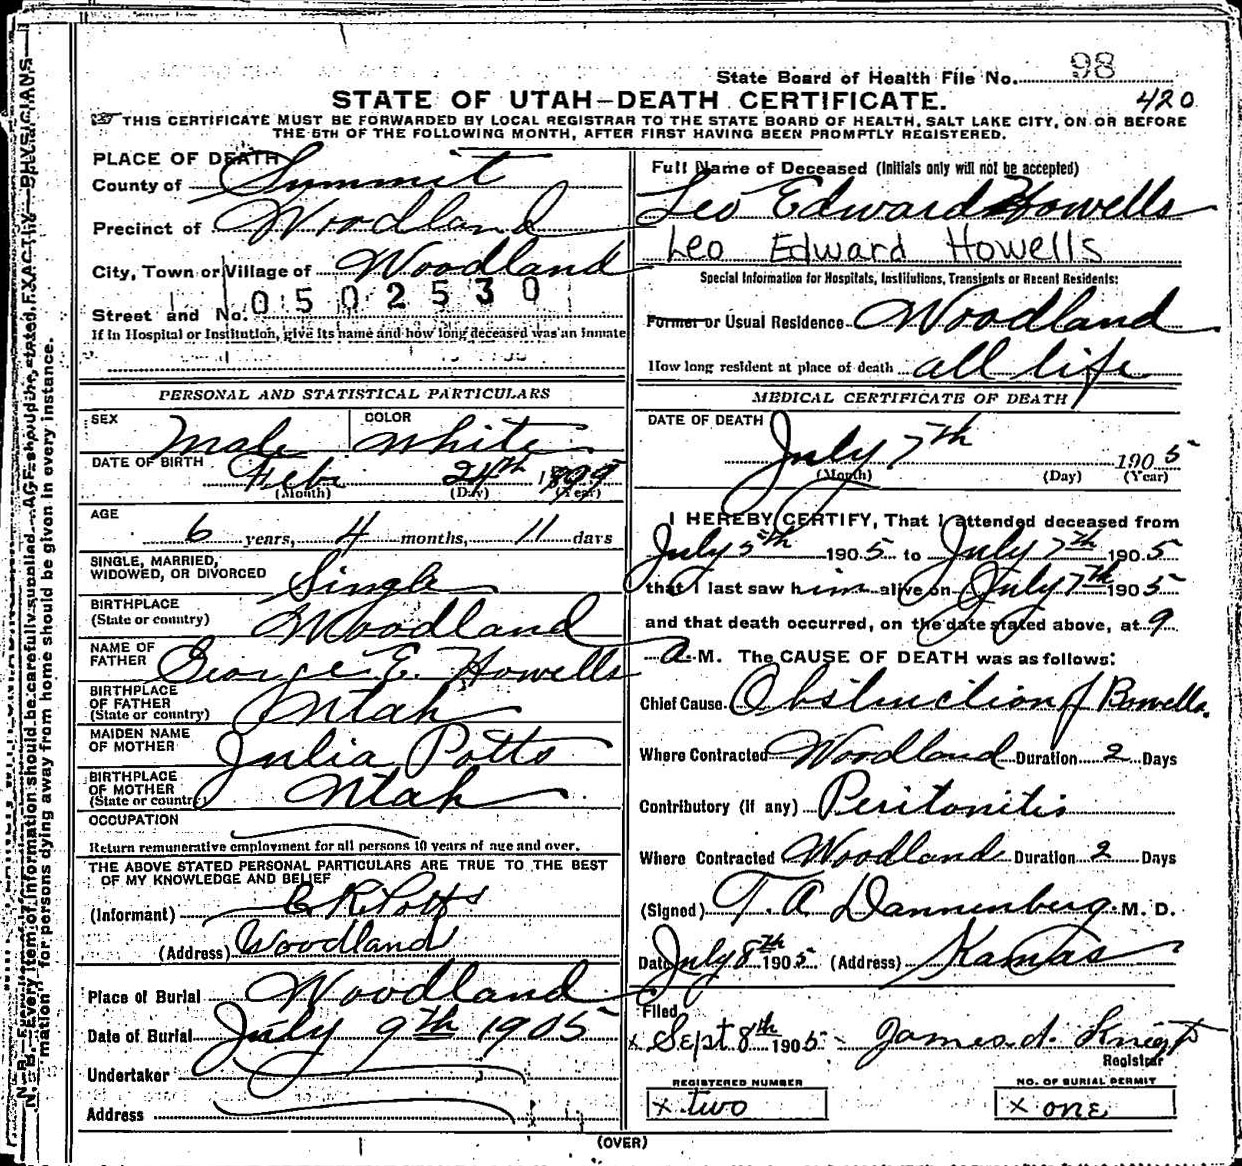 State Board of Health File No. 98
STATE OF UTAH—DEATH CERTIFICATE. 420
THIS CERTIFICATE MUST BE FORWARDED BY LOCAL REGISTRAR TO THE STATE BOARD OF HEALTH, SALT LAKE CITY, ON OR BEFORE
THE 5TH OF THE FOLLOWING MONTH, AFTER FIRST HAVING BEEN PROMPTLY REGISTERED.
PLACE OF DEATH
County of Summit
Precinct of Woodland
City, Town or Village of Woodland
Street and No. 0502530
If in Hospital or Institution, give its name and how long deceased was an inmate
PERSONAL AND STATISTICAL PARTICULARS
SEX Male COLOR White
DATE OF BIRTH Feb. 24th 1899
(Month) (Day) (Year)
AGE
6 years, 4 months, 11 days
SINGLE, MARRIED,
WIDOWED, OR DIVORCED Single
BIRTHPLACE
(State or country) Woodland
NAME OF
FATHER George E. Howells
BIRTHPLACE
OF FATHER
(State or country) Utah
MAIDEN NAME
OF MOTHER Julia Potts
BIRTHPLACE
OF MOTHER
(State or country) Utah
OCCUPATION
Return remunerative employment for all persons 10 years of age and over.
THE ABOVE STATED PERSONAL PARTICULARS ARE TRUE TO THE BEST
OF MY KNOWLEDGE AND BELIEF
(Informant) Potts
(Address) Woodland
Place of Burial Woodland
Date of Burial July 9th 1905
Undertaker
Address
Full Name of Deceased (Initials only will not be accepted)
Leo Edward Howells
Leo Edward Howells
Special Information for Hospitals, Institutions, Transients or Recent Residents:
Former or Usual Residence Woodland
How long resident at place of death all life
MEDICAL CERTIFICATE OF DEATH
DATE OF DEATH
July 7th 1905
(Month) (Day) (Year)
I HEREBY CERTIFY, That I attended deceased from
July 5th 1905 to July 7th 1905
that I last saw him alive on July 7th 1905
and that death occurred, on the date stated above, at 9
A. M. The CAUSE OF DEATH was as follows:
Chief Cause Obstruction of Bowells.
Where Contracted Woodland Duration 2 Days
Contributory (if any) Peritonitis
Where Contracted Woodland Duration 2 Days
(Signed) T. A. Dannenberg. M. D.
Date July 8th 1905 (Address) Kamas
Filed
x Sept 8th 1905 - James A. Knight
Registrar
REGISTERED NUMBER
x two
NO. OF BURIAL PERMIT
x one
(OVER)
N. B.—Every item of information should be carefully supplied. AGE should be stated EXACTLY. PHYSICIANS
mation for persons dying away from home should be given in every instance.